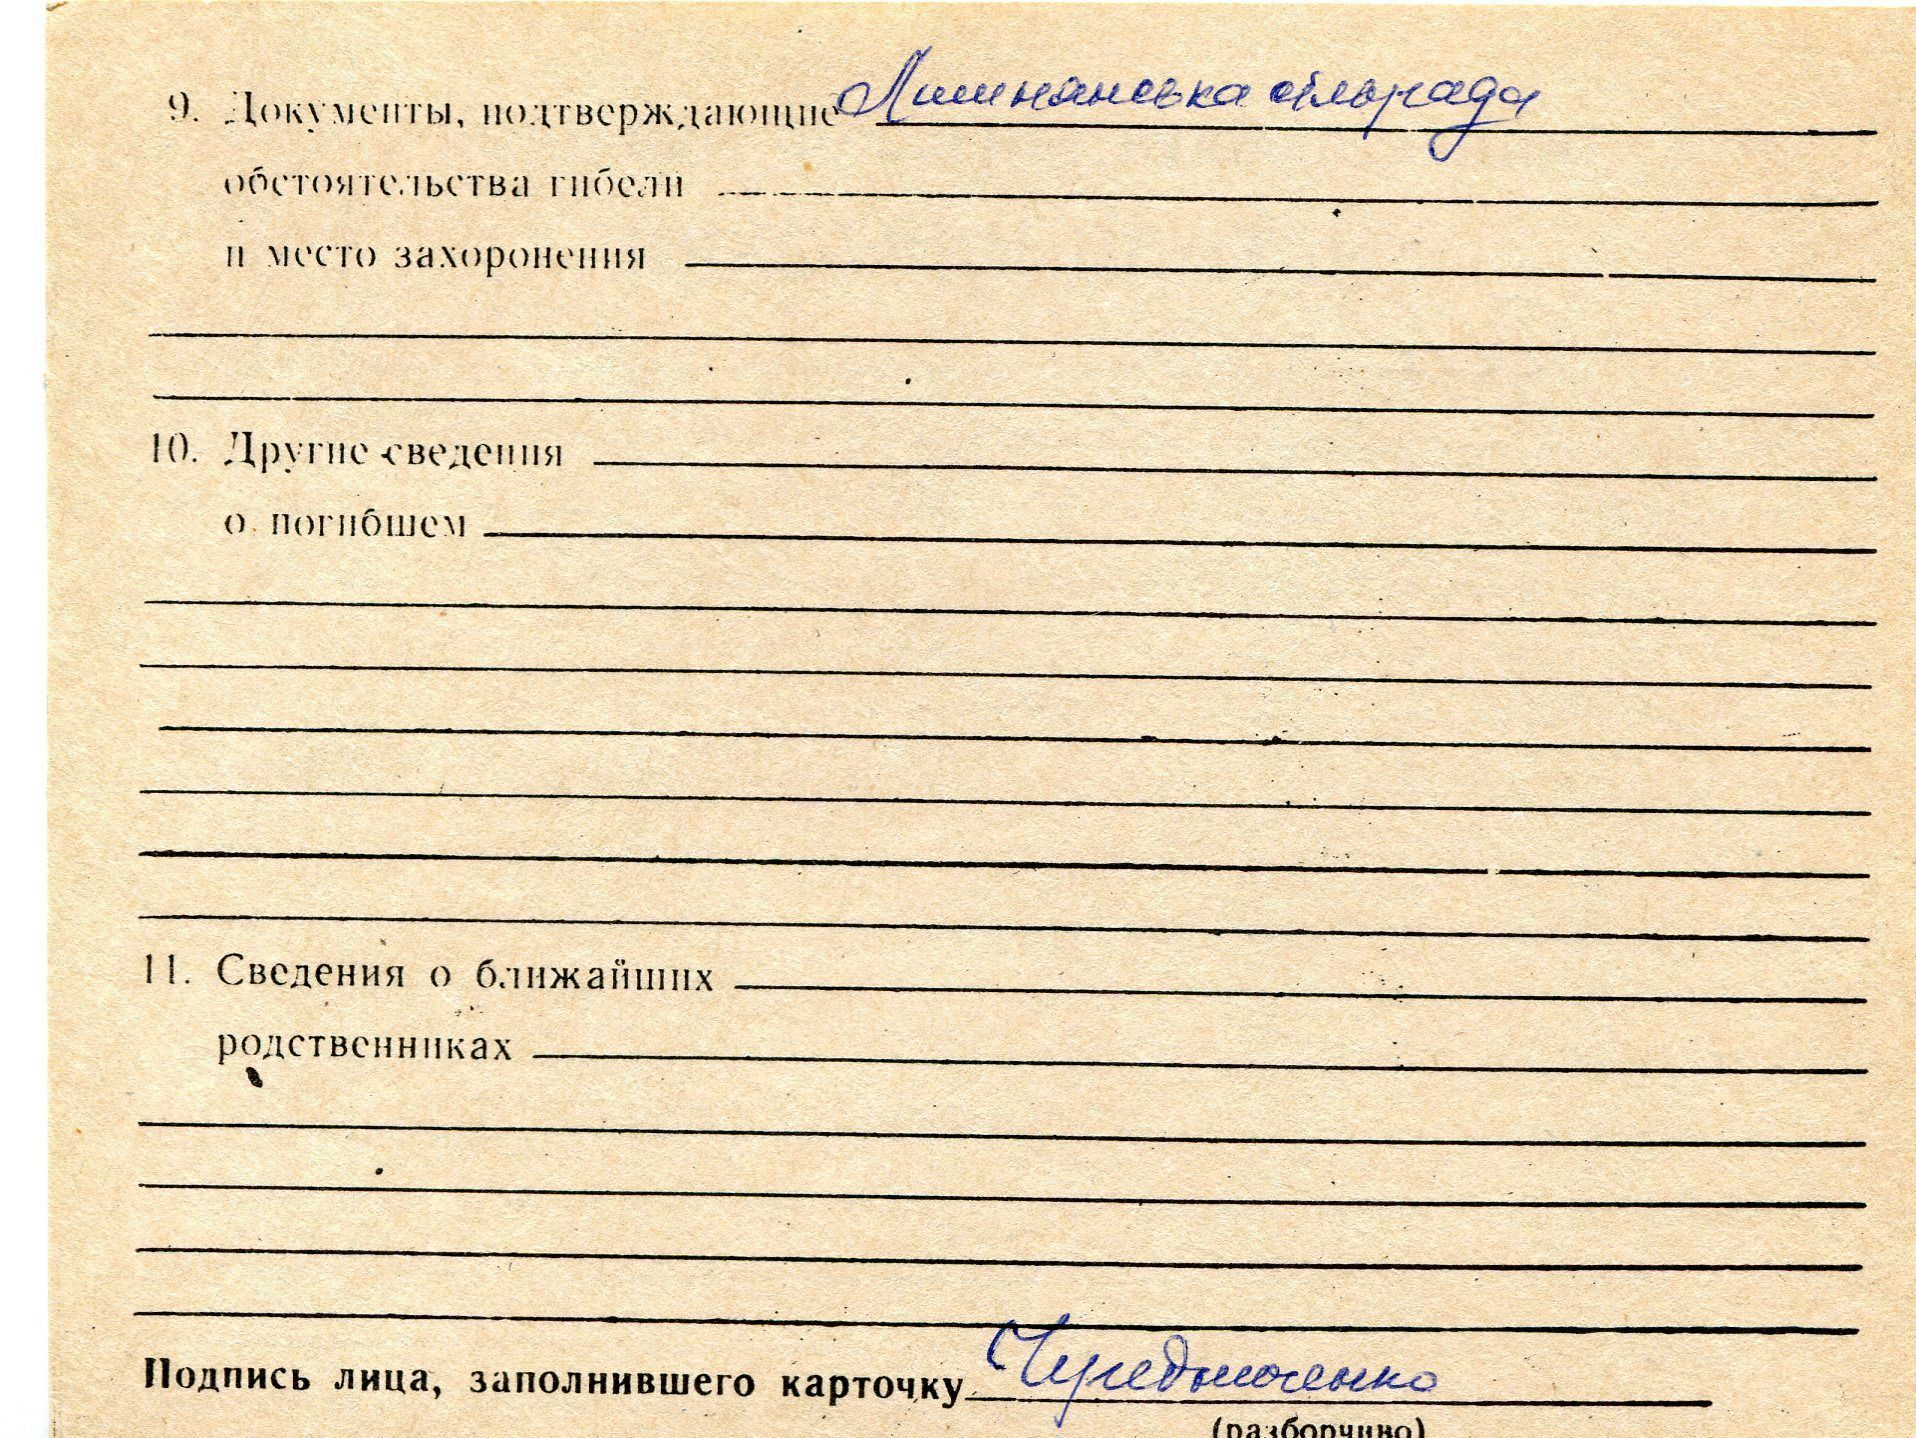 9. Документы, подтверждающие Лишнянська сільрада
обстоятельства гибели
и место захоронения
10. Другие сведения
о погибшем
11. Сведения о ближайших
родственниках
Подпись лица, заполнившего карточку
(разборчиво)